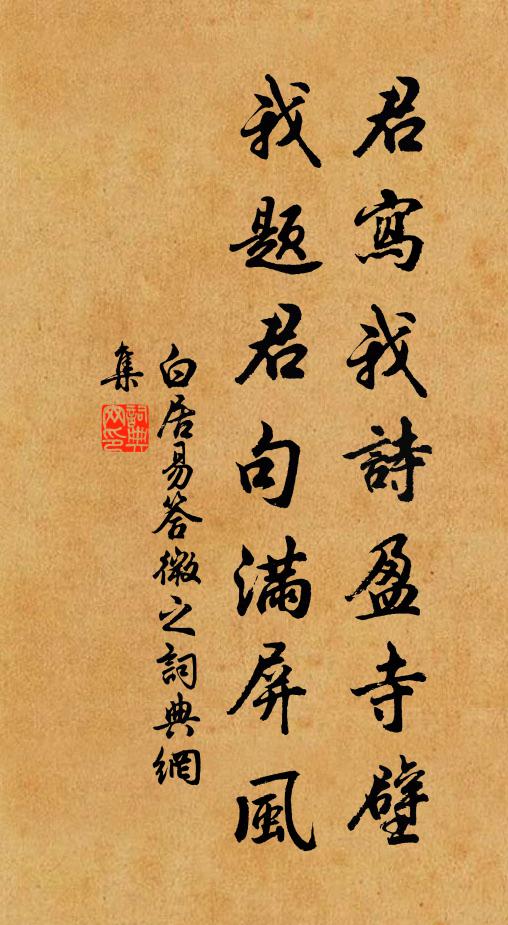 君寫我詩盈寺壁
我题君句滿屏風
白居易答微之詞典網
集
詞典網印